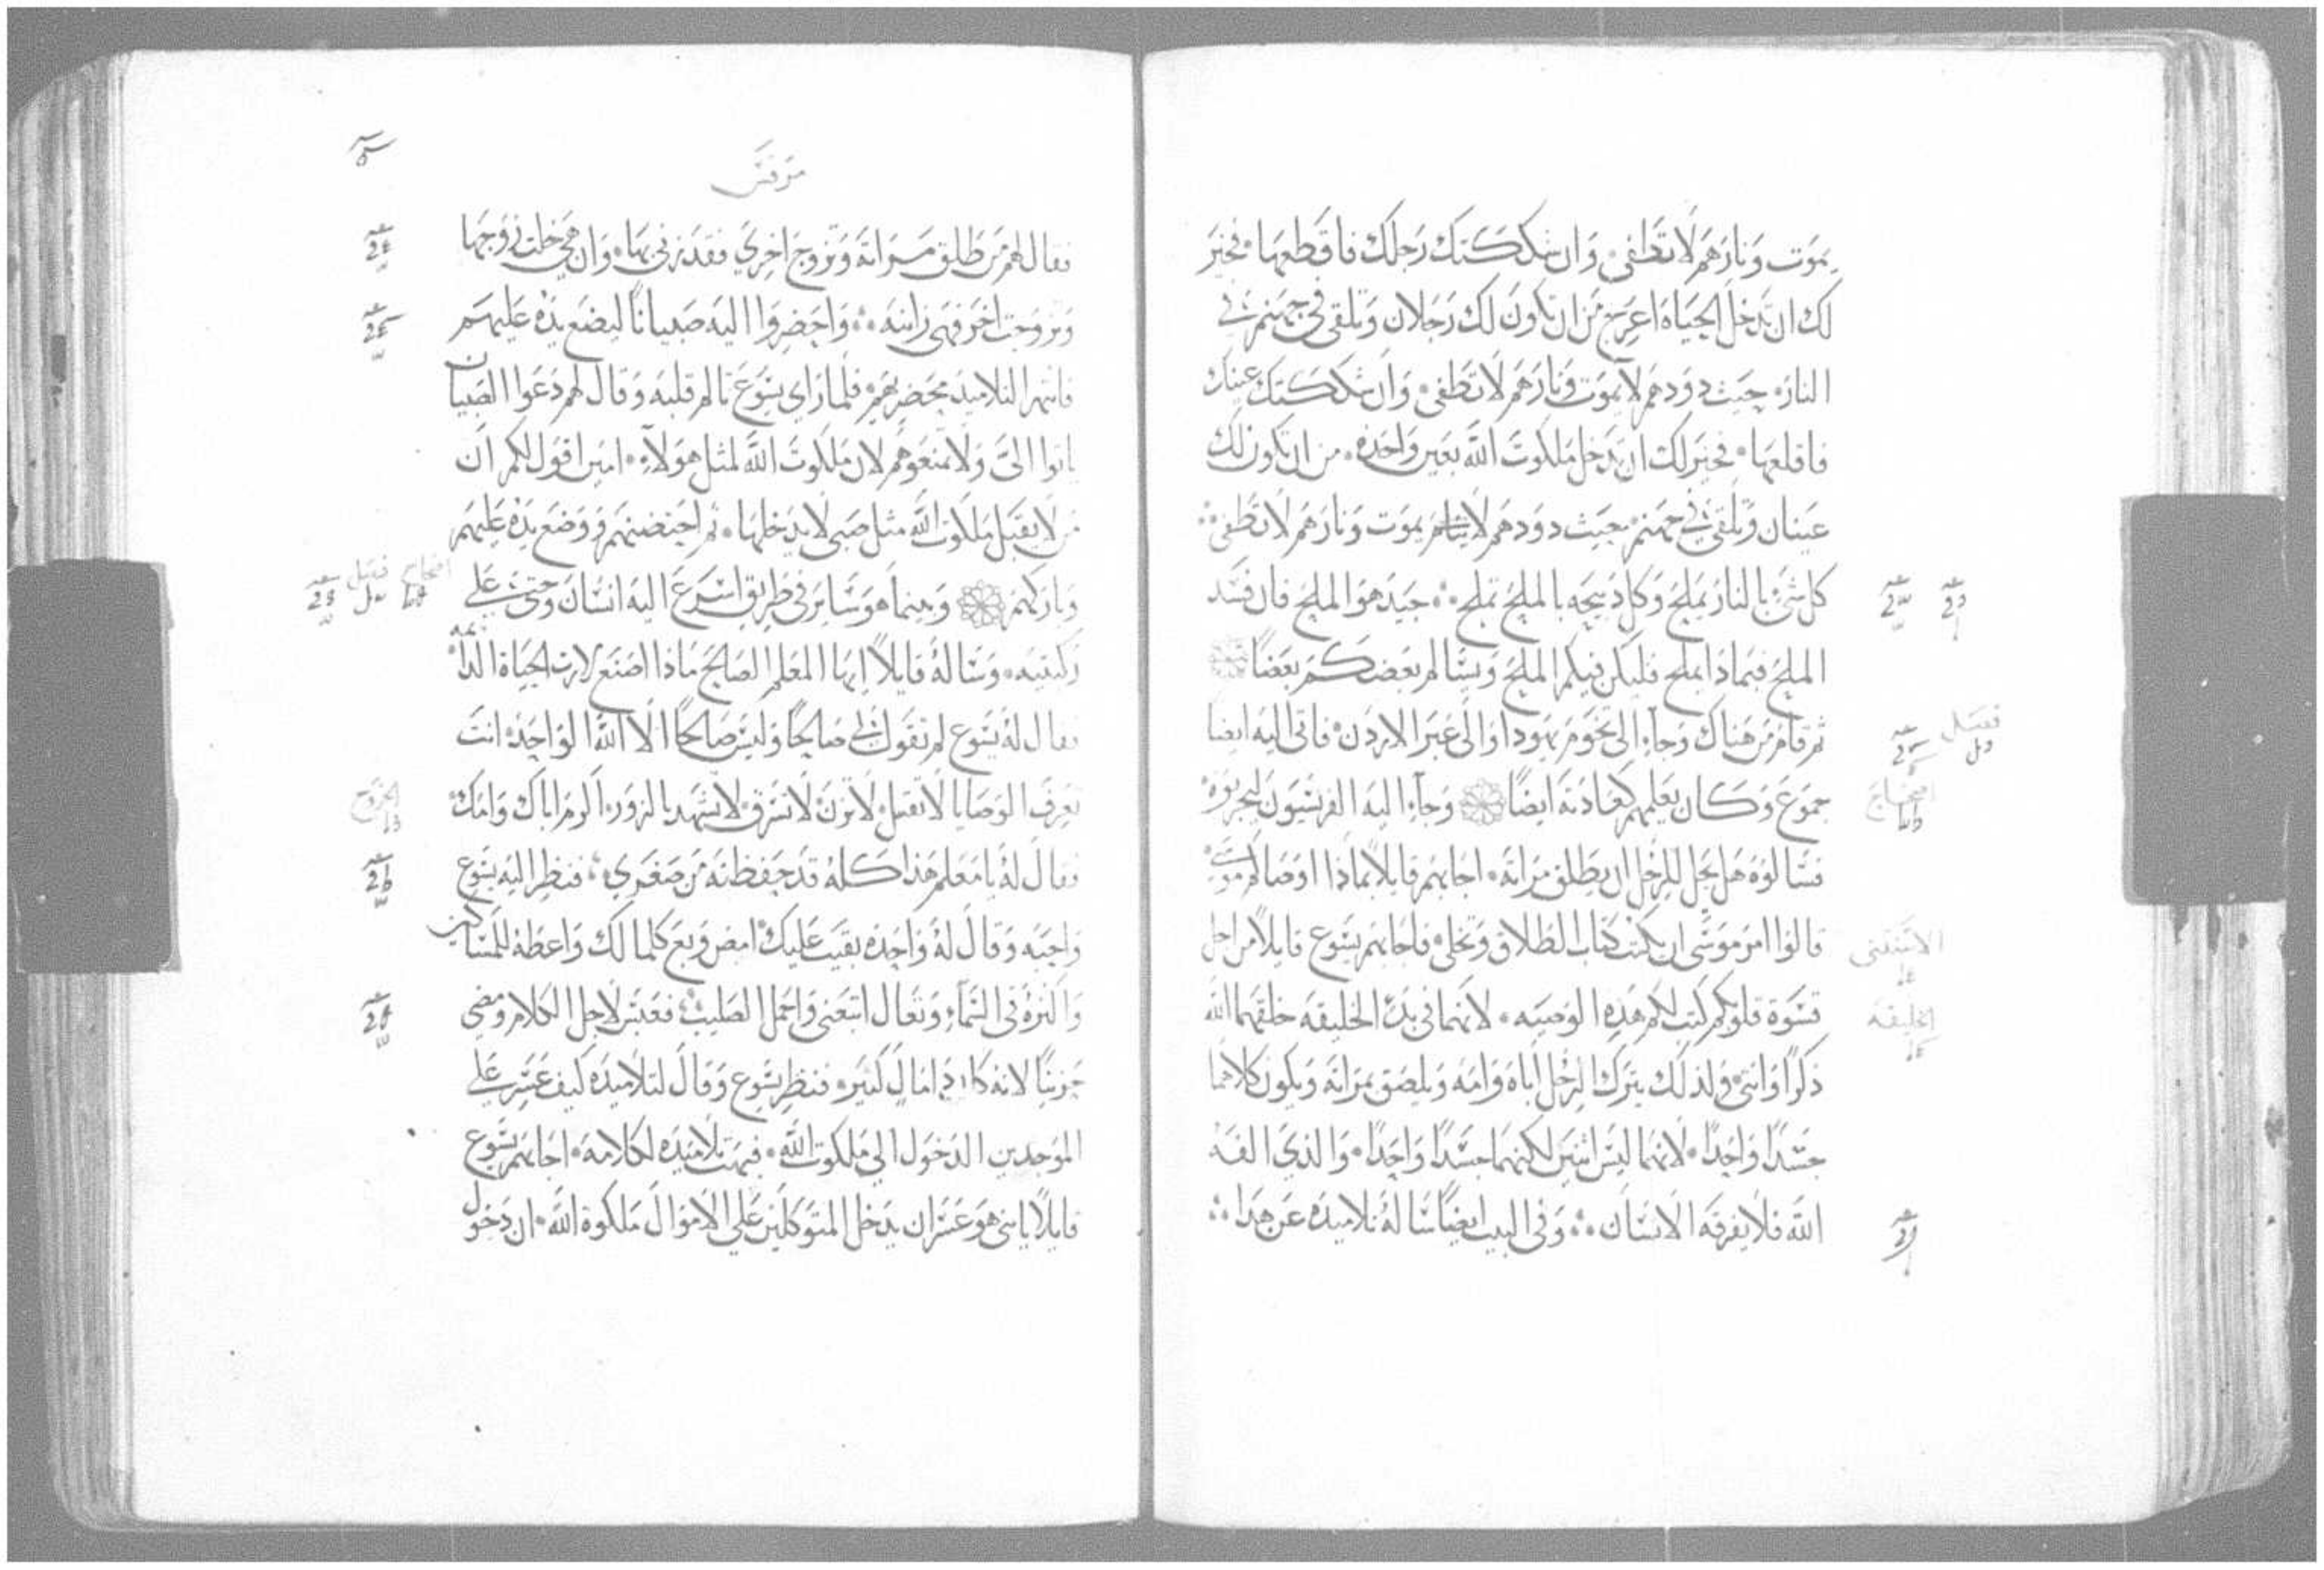 يموت ونارهم لا تطفى وان شككتك رجلك فاقطعها فخير
لك ان تدخل الحياه اعرج من ان تكون لك رجلان وتلقى في جهنم في
النار حيث دودهم لا يموت ونارهم لا تطفى وان شككتك عينك
فاقلعها فخير لك ان تدخل ملكوت الله بعين واحده من ان تكون لك
عينان وتلقى في جهنم حيث دودهم لا يموت ونارهم لا تطفى
كل شي بالنار يملح وكل ذبيحه بالملح تملح جيد هو الملح فان فسد
الملح فبماذا يملح فليكن فيكم الملح ويسالم بعضكم بعضا
ثم قام من هناك وجاء الى تخوم يهودا والى عبر الاردن فاتى اليه ايضا
جموع وكان يعلمهم كعادته ايضا وجاء اليه الفريسيون ليجربوه
فسالوه هل يحل للرجل ان يطلق مراته اجابهم قايلا بماذا اوصاكم موسى
قالوا امر موسى ان يكتب كتاب الطلاق وتخلى فاجابهم يسوع قايلا من اجل
قسوة قلوبكم كتب لكم هذه الوصيه لانهما في بدئ الخليقه خلقهما الله
ذكرا وانثى ولذلك يترك الرجل اباه وامه ويلصق بمراته ويكون كلاهما
جسدا واحدا لانهما ليس اثنين لكنهما جسدا واحدا والذي الفه
الله فلا يفرقه الانسان وفي البيت ايضا ساله تلاميذه عن هذا
فصل
اصحاح
الاستثنى
الخليقه
مرقس
فقال لهم من طلق مراته وتزوج اخري فقد زنى بها وان هي خلت زوجها
وتزوجت اخر فهي زانيه واحضروا اليه صبيانا ليضع يده عليهم
فانتهر التلاميذ محضريهم فلما راى يسوع تالم قلبه وقال لهم دعوا الصبيان
ياتوا الى ولا تمنعوهم لان ملكوت الله لمثل هولاء امين اقول لكم ان
من لا يقبل ملكوت الله مثل صبى لا يدخلها ثم احتضنهم ووضع يده عليهم
وباركهم وبينما هو ساير في طريق اسرع اليه انسان وجثى على
ركبتيه وساله قايلا ايها المعلم الصالح ماذا اصنع لارث الحياة الدايمه
فقال له يسوع لم تقول لي صالحا وليس صالحا الا الله الواحد انت
تعرف الوصايا لا تقتل لا تزن لا تسرق لا تشهد بالزور اكرم اباك وامك
فقال له يا معلم هذا كله قد حفظته من صغري فنظر اليه يسوع
واحبه وقال له واحده بقيت عليك امض وبع كلما لك واعطه للمساكين
واكنزه في السماء وتعال اتبعني واحمل الصليب فعبس لاجل الكلام ومضي
حزينا لانه كان ذا مال كثير فنظر يسوع وقال لتلاميذه كيف عسر على
الموجدين الدخول الي ملكوت الله فبهت تلاميذه لكلامه اجابهم يسوع
قايلا يا بنى هو عسر ان يدخل المتوكلين علي الاموال ملكوة الله ان دخول
اصحاح فصل
الخروج